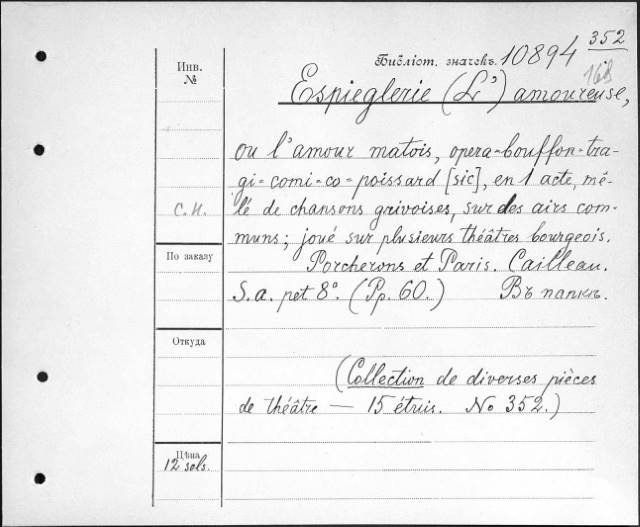 352
Библіот. значекъ. 10894
168
Инв.
№
Espieglerie (L') amoureuse,
ou l'amour matois, opera-bouffon-tra-
gi-comi-co-poissard [sic], en 1 acte, mê-
с.н.
lé de chansons grivoises, sur des airs com-
muns; joué sur plusieurs théâtres bourgeois.
По заказу
Porcherons et Paris. Cailleau.
S.a. pet 8°. (Pp. 60.) Въ папкѣ.
Откуда
(Collection de diverses pièces
de théâtre — 15 étuis. No 352.)
Цѣна
12 sols.